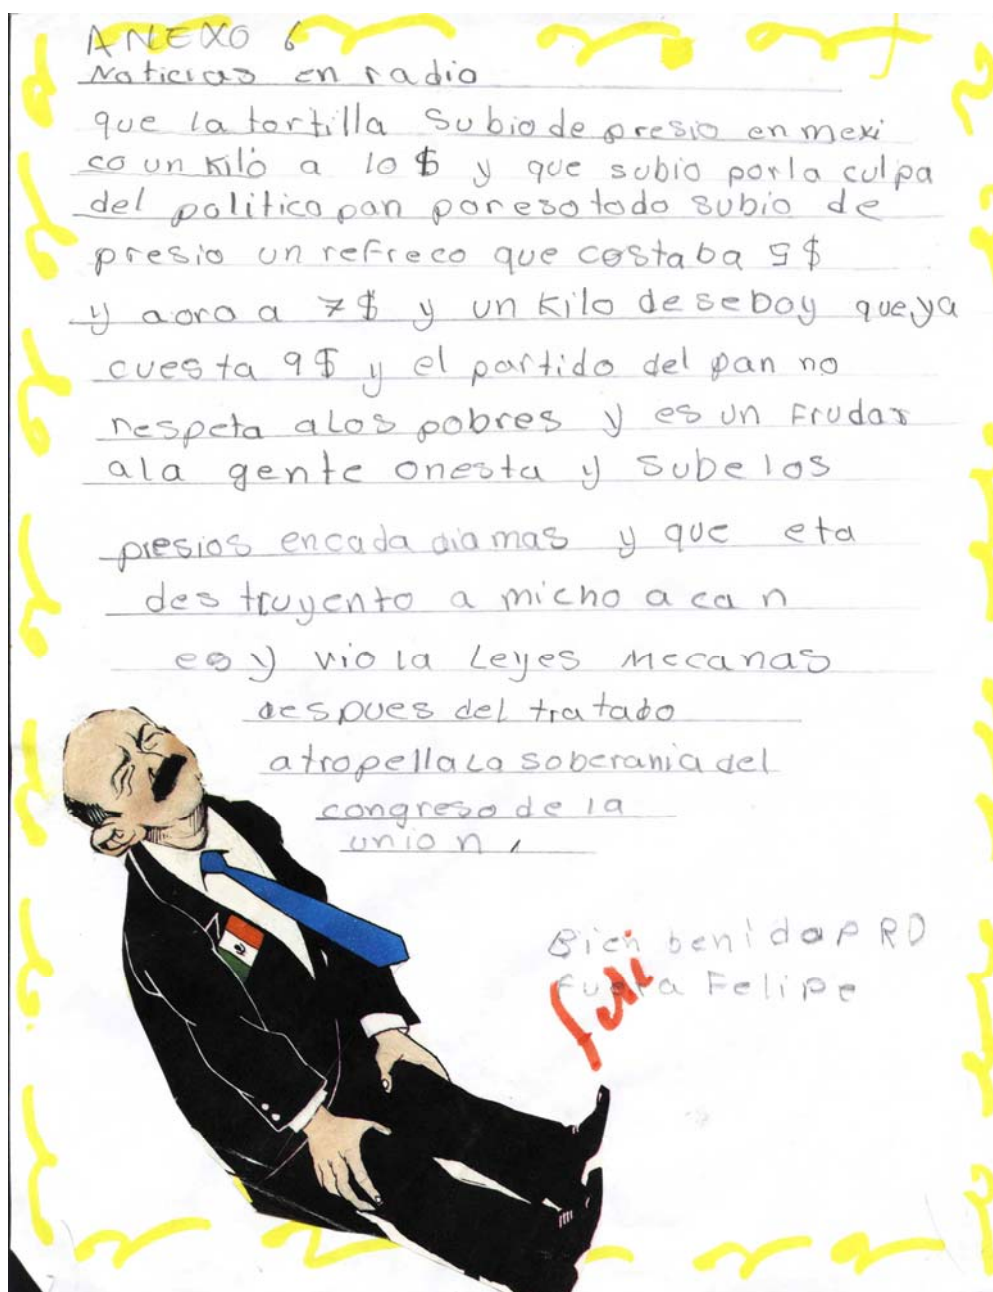 ANEXO 6
Noticias en radio
que la tortilla subio de presio en mexi
co un kilo a 10 $ y que subio por la culpa
del politico pan por eso todo subio de
presio un refreco que costaba 5 $
y aora a 7 $ y un kilo de seboy que ya
cuesta 9 $ y el partido del pan no
respeta a los pobres y es un frudar
ala gente onesta y sube los
presios encada dia mas y que eta
des truyento a micho a ca n
es y viola Leyes mecanas
despues del tratado
atropella La soberania del
congreso de la
union,
Bien benida PRD
fuera Felipe